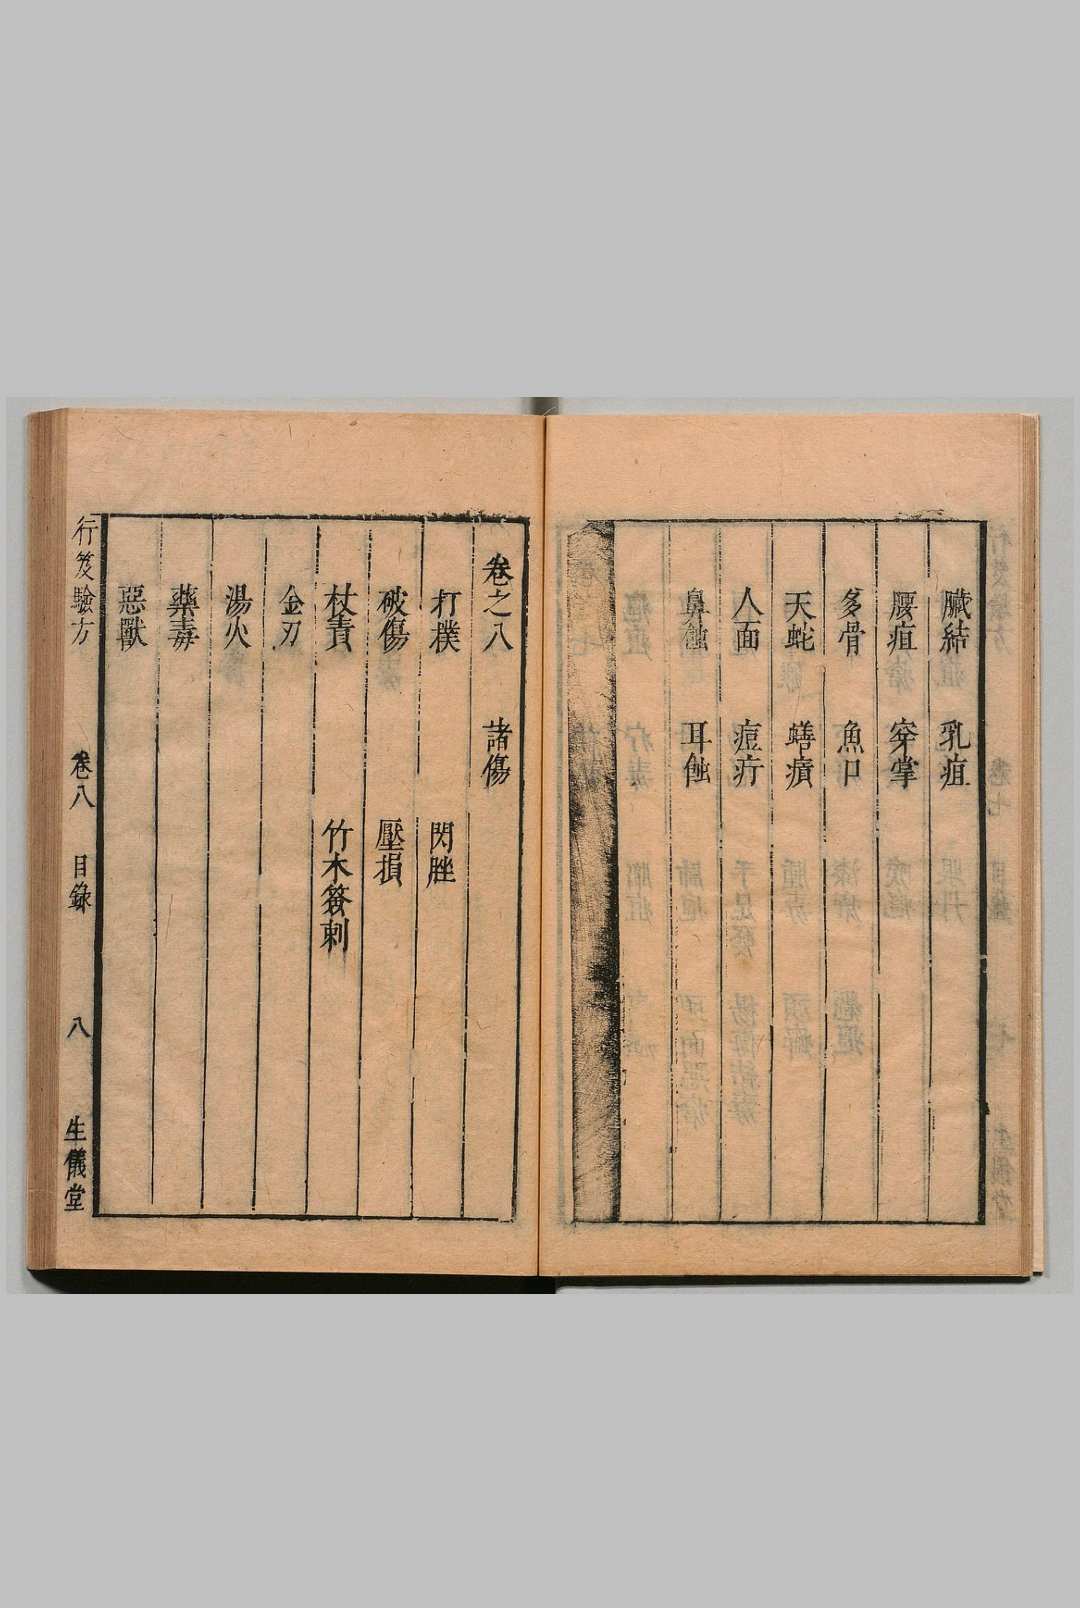 臓結　乳疽
腰疽　穿掌
多骨　魚口
天蛇　蟮㿉
人面　痘疔
鼻蝕　耳蝕
卷之八　諸傷
打撲　閃脞
破傷　壓損
杖責　竹木簽刺
金刃
湯火
藥毒
惡獸
行笈驗方　卷八　目錄　八　生儀堂